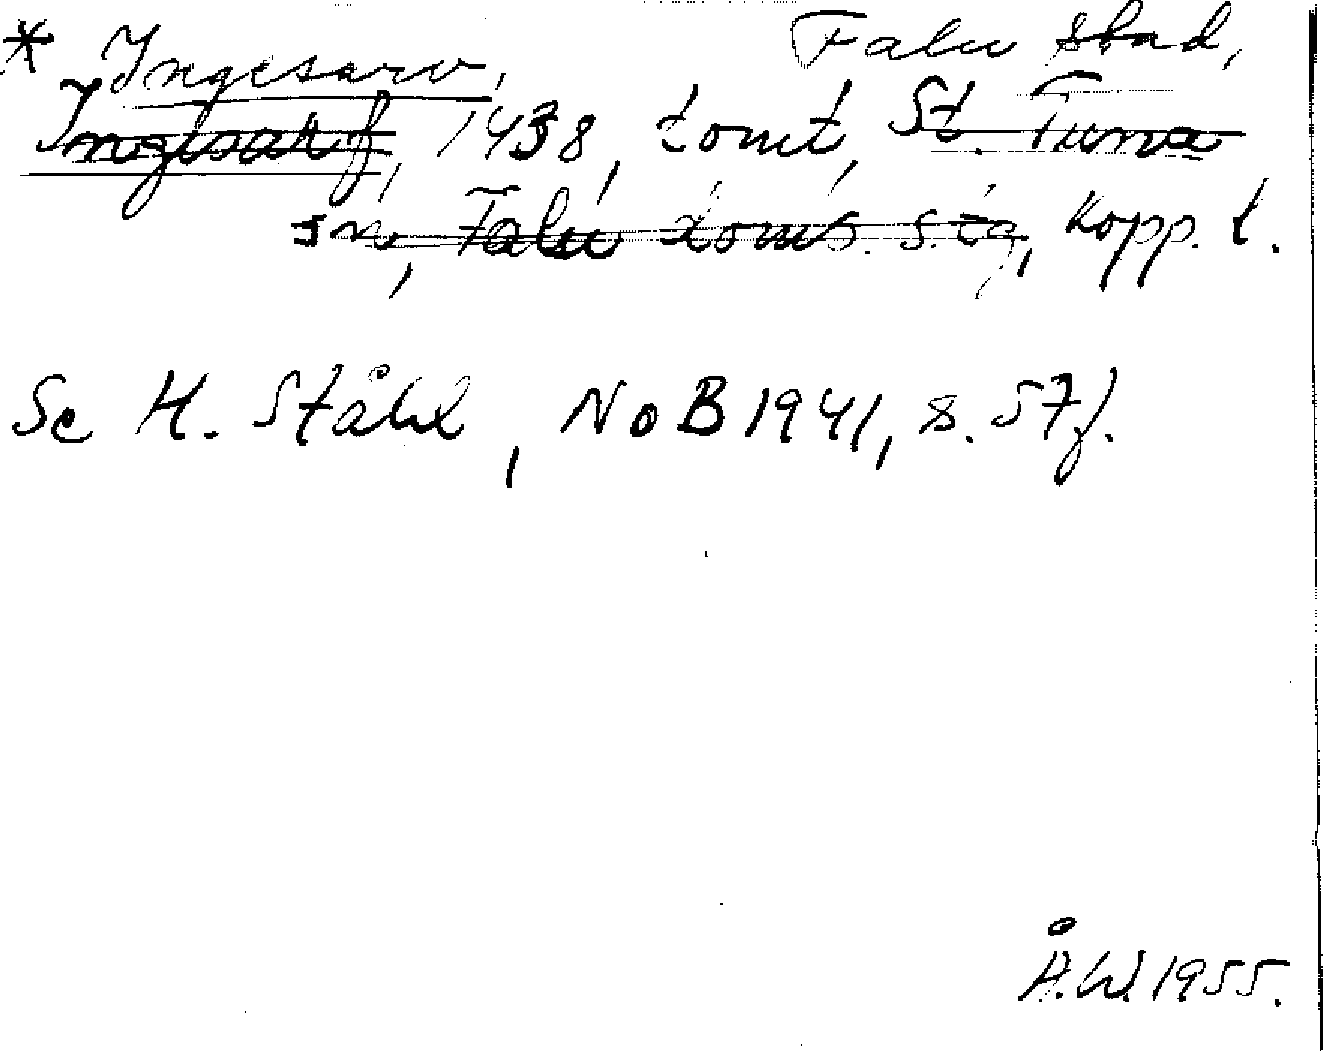 * Ingesarv, Falu stad,
Ingesarf, 1438, tomt, St. Tuna
sn, Falu doms. s. tg, Kopp. l.
Se H. Ståhl, NoB 1941, s. 57f.
Å.W. 1955.